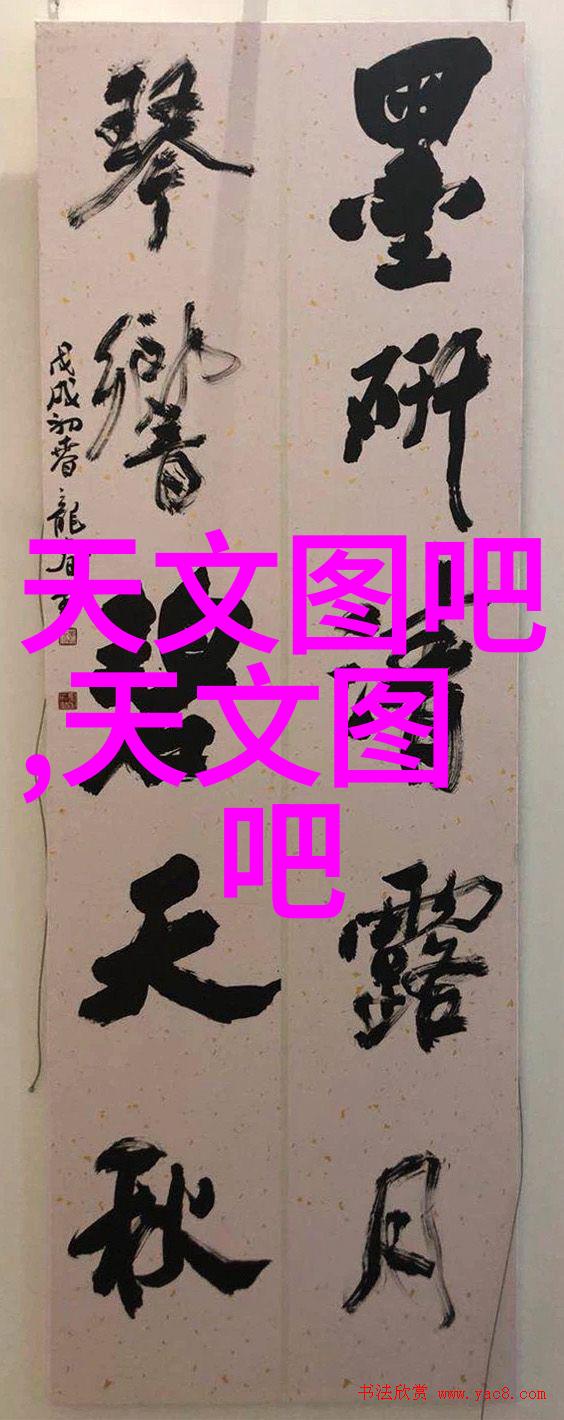 墨研清露月
琴響碧天秋
戊戌初春龍
天文图吧
,天文图
吧
书法欣赏 www.yac8.com